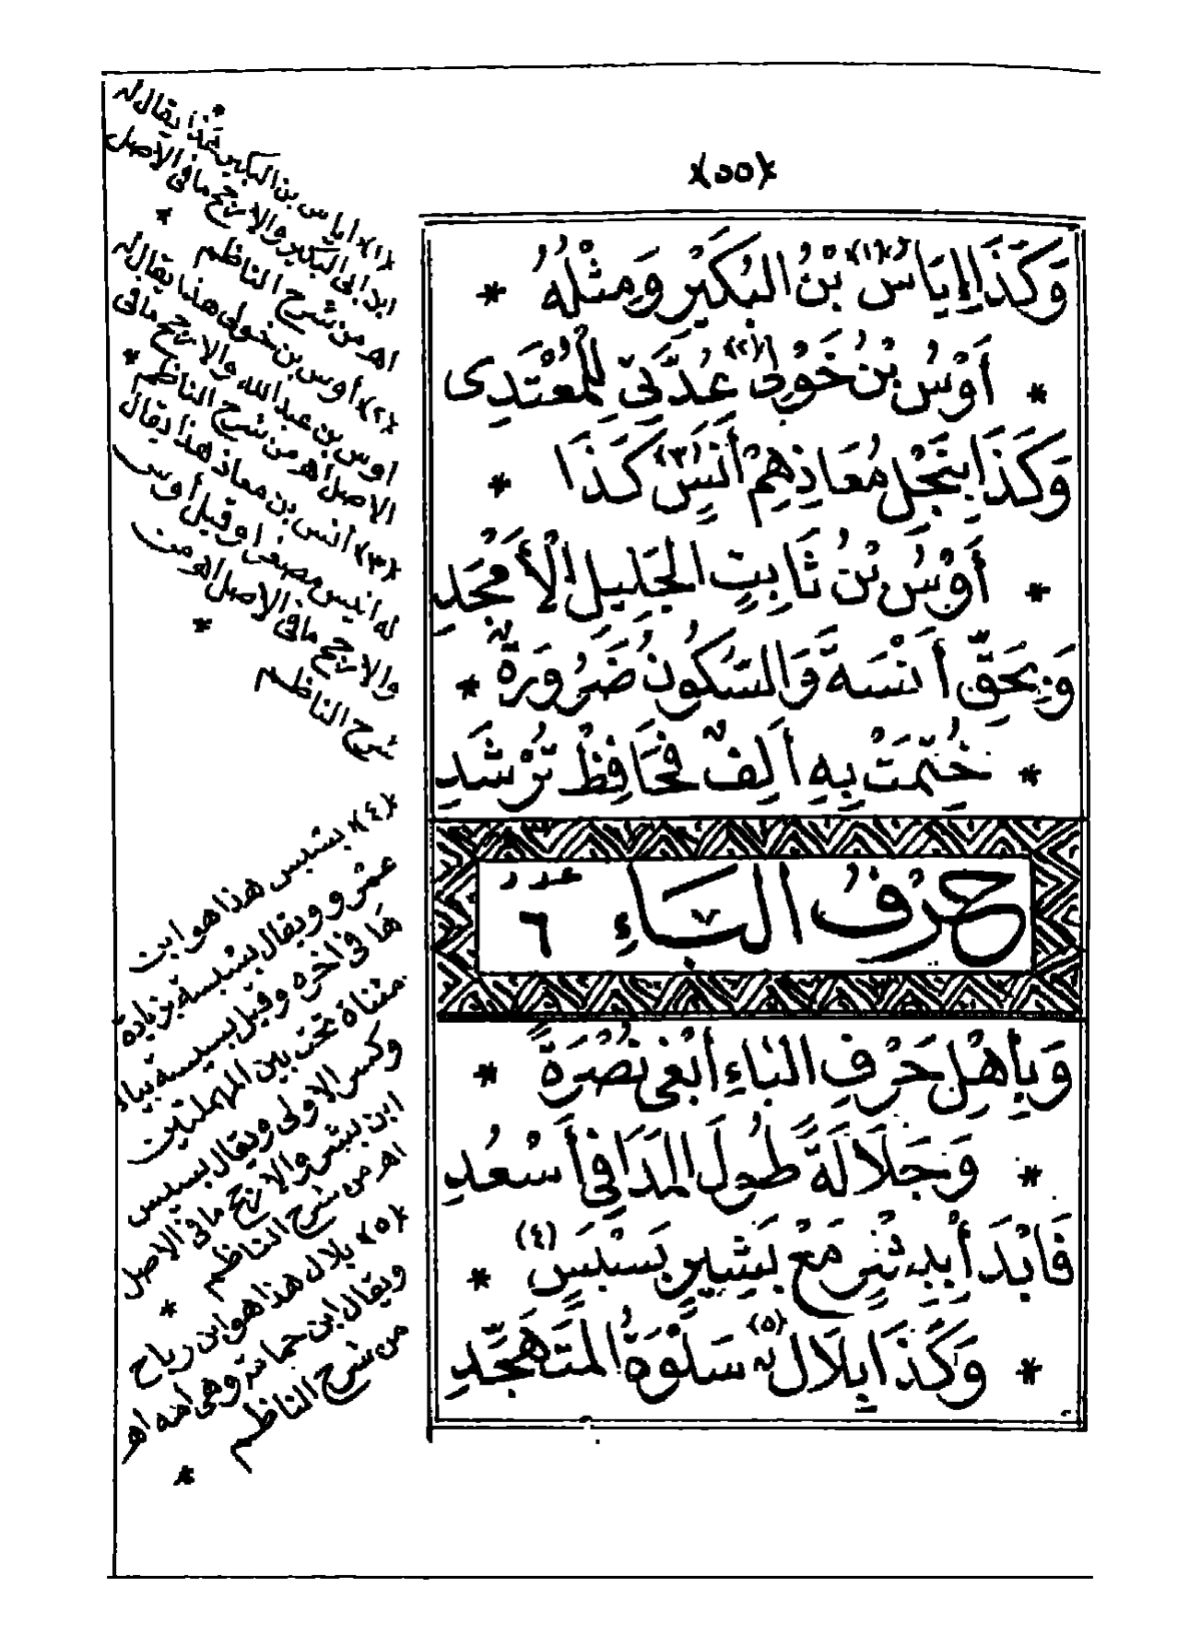 ﴿٥٥﴾
وَكَذَا إِيَاسُ ﴿١﴾ بْنُ الْبُكَيْرِ وَمِثْلُهُ *
* أَوْسُ بْنُ خَوْلِي ﴿٢﴾ عُدَّتِي لِلْمُعْتَدِى
وَكَذَا بِنَجْلِ مُعَاذِهِمْ أَنَسٍ ﴿٣﴾ كَذَا *
* أَوْسُ بْنُ ثَابِتٍ الْجَلِيلِ الْأَمْجَدِ
وَبِحَقِّ أَنْسَةَ وَالسُّكُونُ ضَرُورَةٌ *
* خُتِمَتْ بِهِ أَلِفٌ فَحَافِظْ تَرْشَدِ
حَرْفُ الْبَاءِ عدد ٦
وَبِأَهْلِ حَرْفِ الْبَاءِ أَبْغِي نُصْرَةً *
* وَجَلَالَةً طُولَ الْمَدَا فِي أَسْعُدِ
فَابْدَأْ بِبِشْرٍ مَعْ بَشِيرٍ بَسْبَسٍ (٤) *
* وَكَذَا بِلَالٌ (٥) سَلْوَةُ الْمُتَهَجِّدِ
﴿١﴾ اياس بن البكير هذا يقال له
ابن ابى البكير والارجح مافى الاصل
اهـ من شرح الناظم *
﴿٢﴾ أوس بن خولى هذا يقال له
اوس بن عبد الله والارجح مافى
الاصل اهـ من شرح الناظم *
﴿٣﴾ أنس بن معاذ هذا يقال
له انيس مصغرا وقيل أوس
والارجح مافى الاصل اهـ من
شرح الناظم *
﴿٤﴾ بسبس هذا هو ابن
عمرو ويقال بسبسة بزيادة
ها فى اخره وقيل بسيسة بياء
مثناة تحت بين المهملتين
وكسر الاولى ويقال بسبس
ابن بشر والارجح مافى الاصل
اهـ من شرح الناظم *
﴿٥﴾ بلال هذا هو ابن رباح
ويقال ابن حمامة وهى امه اهـ
من شرح الناظم *